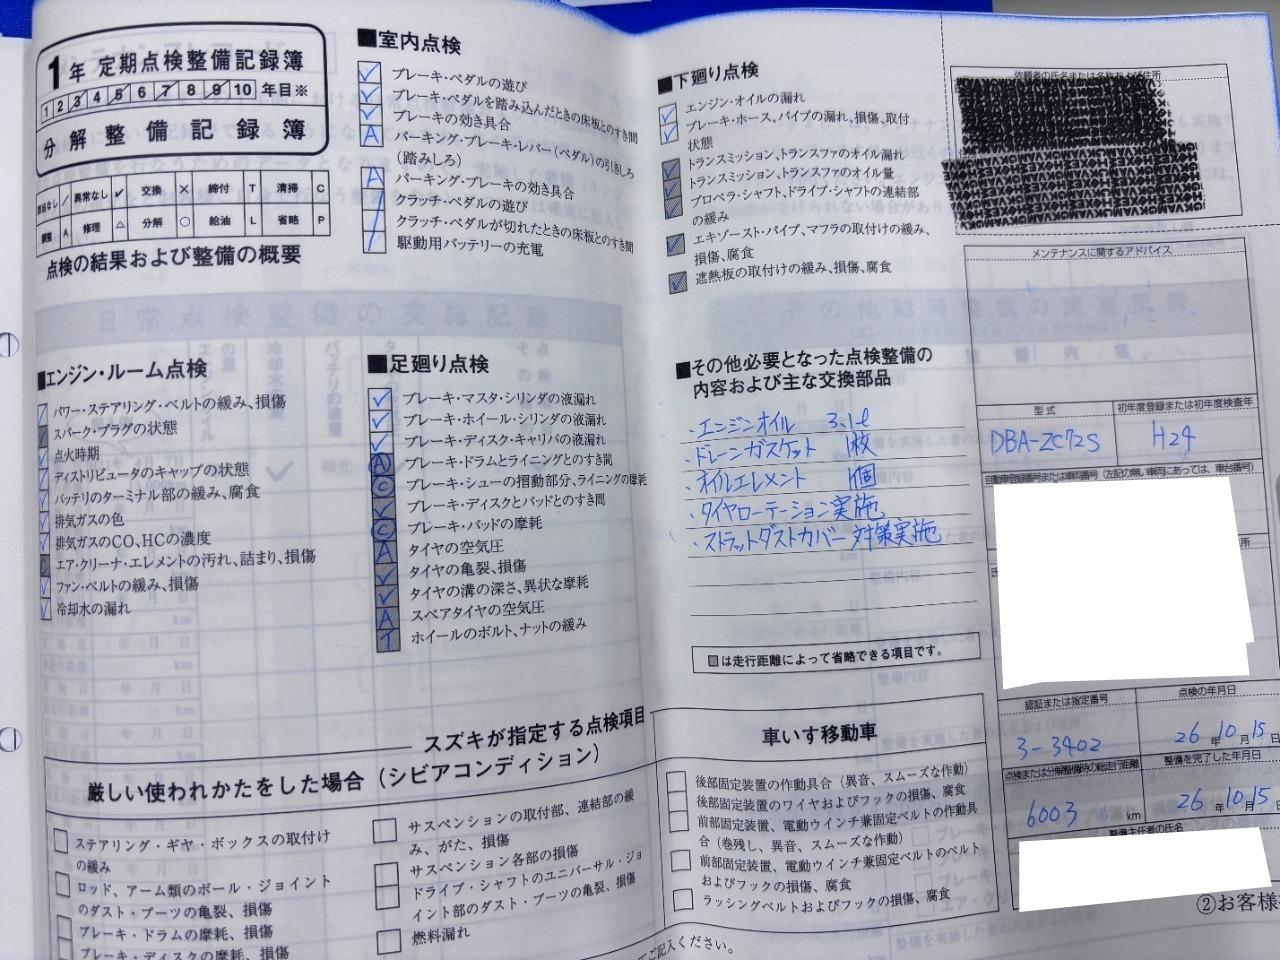 1年 定期点検整備記録簿
1 2 3 4 5 6 7 8 9 10 年目※
分解整備記録簿
該当なし / 異常なし ✓ 交換 × 締付 T 清掃 C
調整 A 修理 △ 分解 ○ 給油 L 省略 P
点検の結果および整備の概要
■エンジン・ルーム点検
パワー・ステアリング・ベルトの緩み、損傷
スパーク・プラグの状態
点火時期
ディストリビュータのキャップの状態
バッテリのターミナル部の緩み、腐食
排気ガスの色
排気ガスのCO、HCの濃度
エア・クリーナ・エレメントの汚れ、詰まり、損傷
ファン・ベルトの緩み、損傷
冷却水の漏れ
■室内点検
✓ ブレーキ・ペダルの遊び
✓ ブレーキ・ペダルを踏み込んだときの床板とのすき間
✓ ブレーキの効き具合
A パーキング・ブレーキ・レバー(ペダル)の引きしろ
(踏みしろ)
A パーキング・ブレーキの効き具合
/ クラッチ・ペダルの遊び
/ クラッチ・ペダルが切れたときの床板とのすき間
/ 駆動用バッテリーの充電
■足廻り点検
✓ ブレーキ・マスタ・シリンダの液漏れ
✓ ブレーキ・ホイール・シリンダの液漏れ
✓ ブレーキ・ディスク・キャリパの液漏れ
A ブレーキ・ドラムとライニングとのすき間
C ブレーキ・シューの摺動部分、ライニングの摩耗
✓ ブレーキ・ディスクとパッドとのすき間
C ブレーキ・パッドの摩耗
A タイヤの空気圧
✓ タイヤの亀裂、損傷
✓ タイヤの溝の深さ、異状な摩耗
A スペアタイヤの空気圧
T ホイールのボルト、ナットの緩み
■下廻り点検
✓ エンジン・オイルの漏れ
✓ ブレーキ・ホース、パイプの漏れ、損傷、取付
状態
トランスミッション、トランスファのオイル漏れ
トランスミッション、トランスファのオイル量
プロペラ・シャフト、ドライブ・シャフトの連結部
の緩み
エキゾースト・パイプ、マフラの取付けの緩み、
損傷、腐食
遮熱板の取付けの緩み、損傷、腐食
■その他必要となった点検整備の
内容および主な交換部品
・エンジンオイル 3.1ℓ
・ドレーンガスケット 1枚
・オイルエレメント 1個
・タイヤローテーション実施
・ストラットダストカバー対策実施
は走行距離によって省略できる項目です。
依頼者の氏名または名称および住所
メンテナンスに関するアドバイス
型式
DBA-ZC72S
初年度登録または初年度検査年
H24
自動車登録番号または車両番号(左記の無い車両にあっては、車台番号)
認証または指定番号
3-3402
点検の年月日
26年10月15日
点検または分解整備時の総走行距離
6003 km
整備を完了した年月日
26年10月15日
整備主任者の氏名
スズキが指定する点検項目
厳しい使われかたをした場合(シビアコンディション)
ステアリング・ギヤ・ボックスの取付け
の緩み
ロッド、アーム類のボール・ジョイント
のダスト・ブーツの亀裂、損傷
ブレーキ・ドラムの摩耗、損傷
ブレーキ・ディスクの摩耗、損傷
サスペンションの取付部、連結部の緩
み、がた、損傷
サスペンション各部の損傷
ドライブ・シャフトのユニバーサル・ジョ
イント部のダスト・ブーツの亀裂、損傷
燃料漏れ
車いす移動車
後部固定装置の作動具合(異音、スムーズな作動)
後部固定装置のワイヤおよびフックの損傷、腐食
前部固定装置、電動ウインチ兼固定ベルトの作動具
合(巻残し、異音、スムーズな作動)
前部固定装置、電動ウインチ兼固定ベルトのベルト
およびフックの損傷、腐食
ラッシングベルトおよびフックの損傷、腐食
ご記入ください。
②お客様